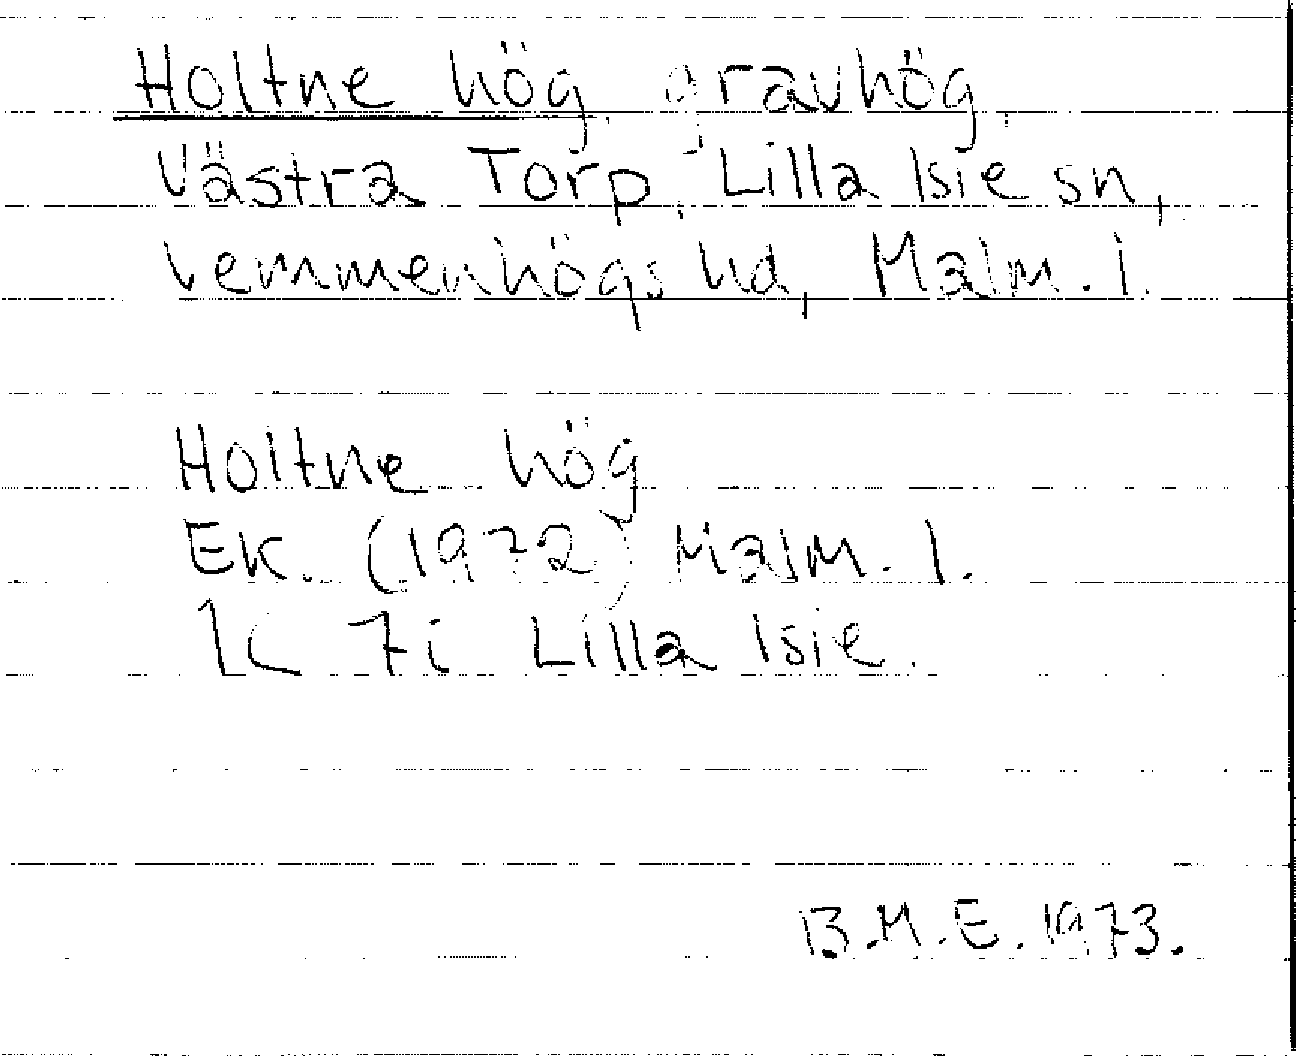 Holtne hög, gravhög,
Västra Torp, Lilla Isie sn,
Vemmenhögs hd, Malm. l.
Holtne hög
Ek. (1972) Malm. l.
1C 7i Lilla Isie.
B.M.E. 1973.